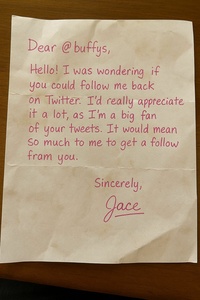 Dear @buffys,
Hello! I was wondering if
you could follow me back
on Twitter. I'd really appreciate
it a lot, as I'm a big fan
of your tweets. It would mean
so much to me to get a follow
fram you.
Sincerely,
Jace